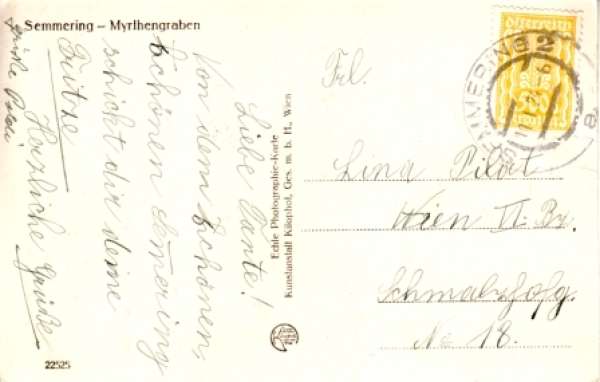 Semmering – Myrthengraben
Liebe Tante!
Von dem schönen,
schönen Semering
schickt dir deine
Fritze
Herzliche Grüße
Grüße Poldi
Echte Photographie-Karte
Kunstanstalt Kilophot, Ges. m. b. H., Wien
22525
österreich
SEMMERING 2
a
Frl.
Lina Pilat
Wien VI. Bz.
Schmalzhofg.
No 18.